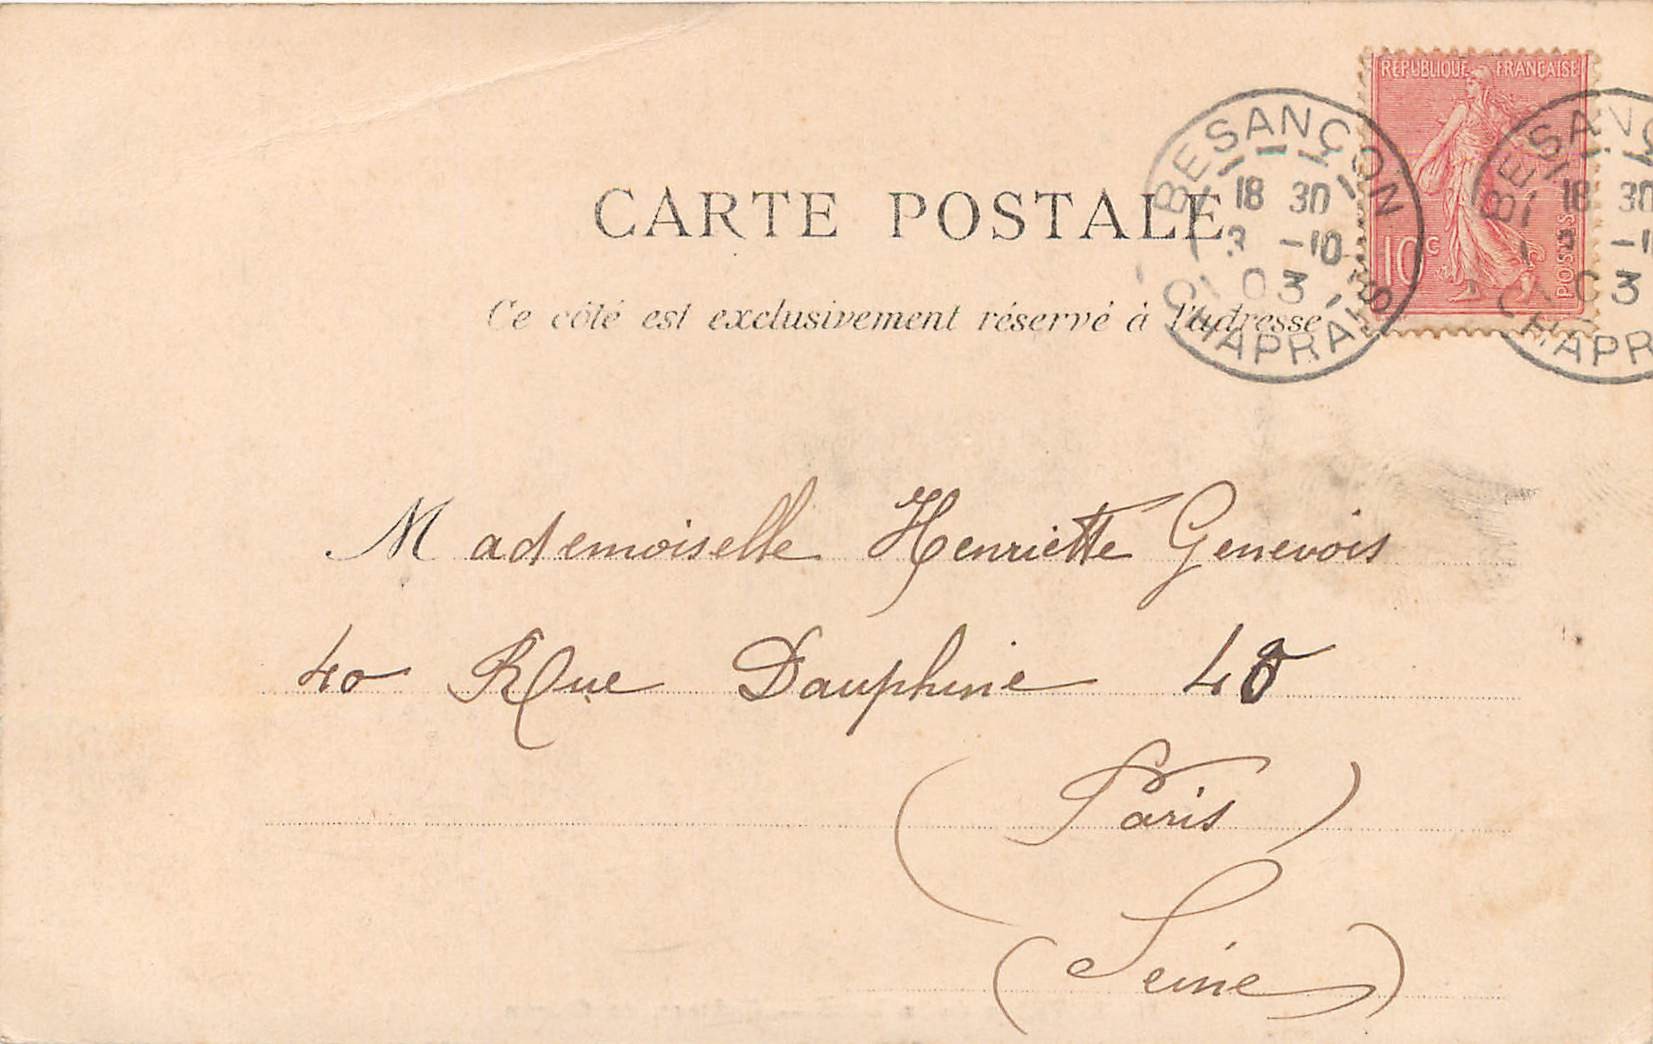 RÉPUBLIQUE FRANÇAISE
10c
POSTES
BESANÇON
18 30
3 -10
03
CHAPRAIS
BESANÇ
18 30
3 -1
03
CHAPR
CARTE POSTALE
Ce côté est exclusivement réservé à l'adresse
Mademoiselle Henriette Genevois
40 Rue Dauphine 40
(Paris)
(Seine)